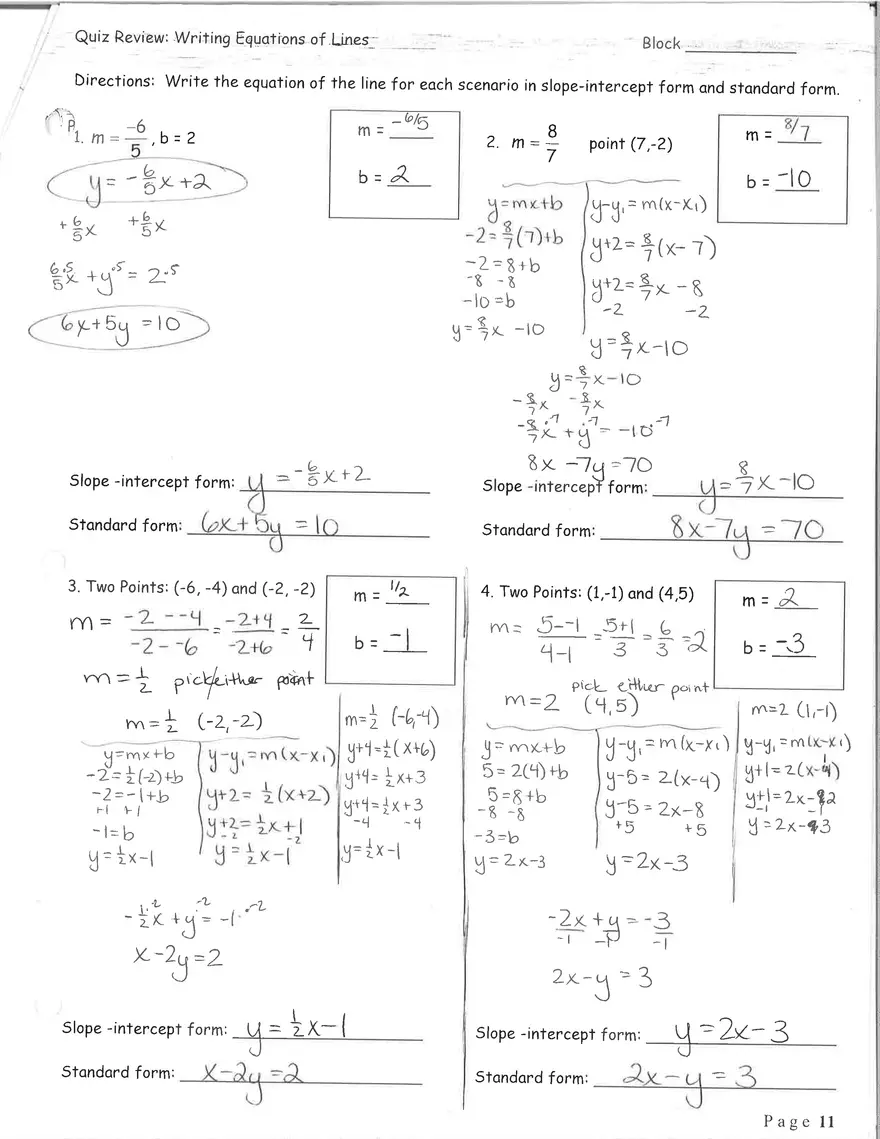 Quiz Review: Writing Equations of Lines
Block
Directions: Write the equation of the line for each scenario in slope-intercept form and standard form.
1. m = -6/5, b = 2
m = -6/5
b = 2
y = -6/5x + 2
+6/5x +6/5x
6·5/5x + y·5 = 2·5
6x+5y = 10
Slope -intercept form: y = -6/5x+2
Standard form: 6x+5y = 10
2. m = 8/7 point (7,-2)
m = 8/7
b = -10
y=mx+b
-2= 8/7(7)+b
-2=8+b
-8 -8
-10=b
y=8/7x -10
y-y₁=m(x-x₁)
y+2= 8/7(x-7)
y+2= 8/7x -8
-2 -2
y=8/7x-10
y=8/7x-10
-8/7x -8/7x
-8/7x·-7 + y·-7 = -10·-7
8x -7y =70
Slope -intercept form: y= 8/7x-10
Standard form: 8x-7y = 70
3. Two Points: (-6, -4) and (-2, -2)
m = 1/2
b = -1
m = -2--4/-2--6 = -2+4/-2+6 = 2/4
m= 1/2 pick either point
m= 1/2 (-2,-2)
y=mx+b
-2= 1/2(-2)+b
-2=-1+b
+1 +1
-1=b
y= 1/2x-1
y-y₁=m(x-x₁)
y+2= 1/2(x+2)
y+2= 1/2x+1
-2 -2
y= 1/2x-1
m=1/2 (-6,-4)
y+4=1/2(x+6)
y+4= 1/2x+3
y+4=1/2x+3
-4 -4
y=1/2x-1
-1/2·-2x + y·-2 = -1·-2
x-2y=2
Slope -intercept form: y = 1/2x-1
Standard form: x-2y=2
4. Two Points: (1,-1) and (4,5)
m = 2
b = -3
m= 5--1/4-1 = 5+1/3 = 6/3 =2
pick either point
m=2 (4,5)
y=mx+b
5= 2(4)+b
5=8+b
-8 -8
-3=b
y=2x-3
y-y₁=m(x-x₁)
y-5= 2(x-4)
y-5=2x-8
+5 +5
y=2x-3
m=2 (1,-1)
y-y₁=m(x-x₁)
y+1=2(x-1)
y+1=2x-2
-1 -1
y=2x-3
-2x+y=-3
-1 -1 -1
2x-y =3
Slope -intercept form: y=2x-3
Standard form: 2x-y = 3
Page 11